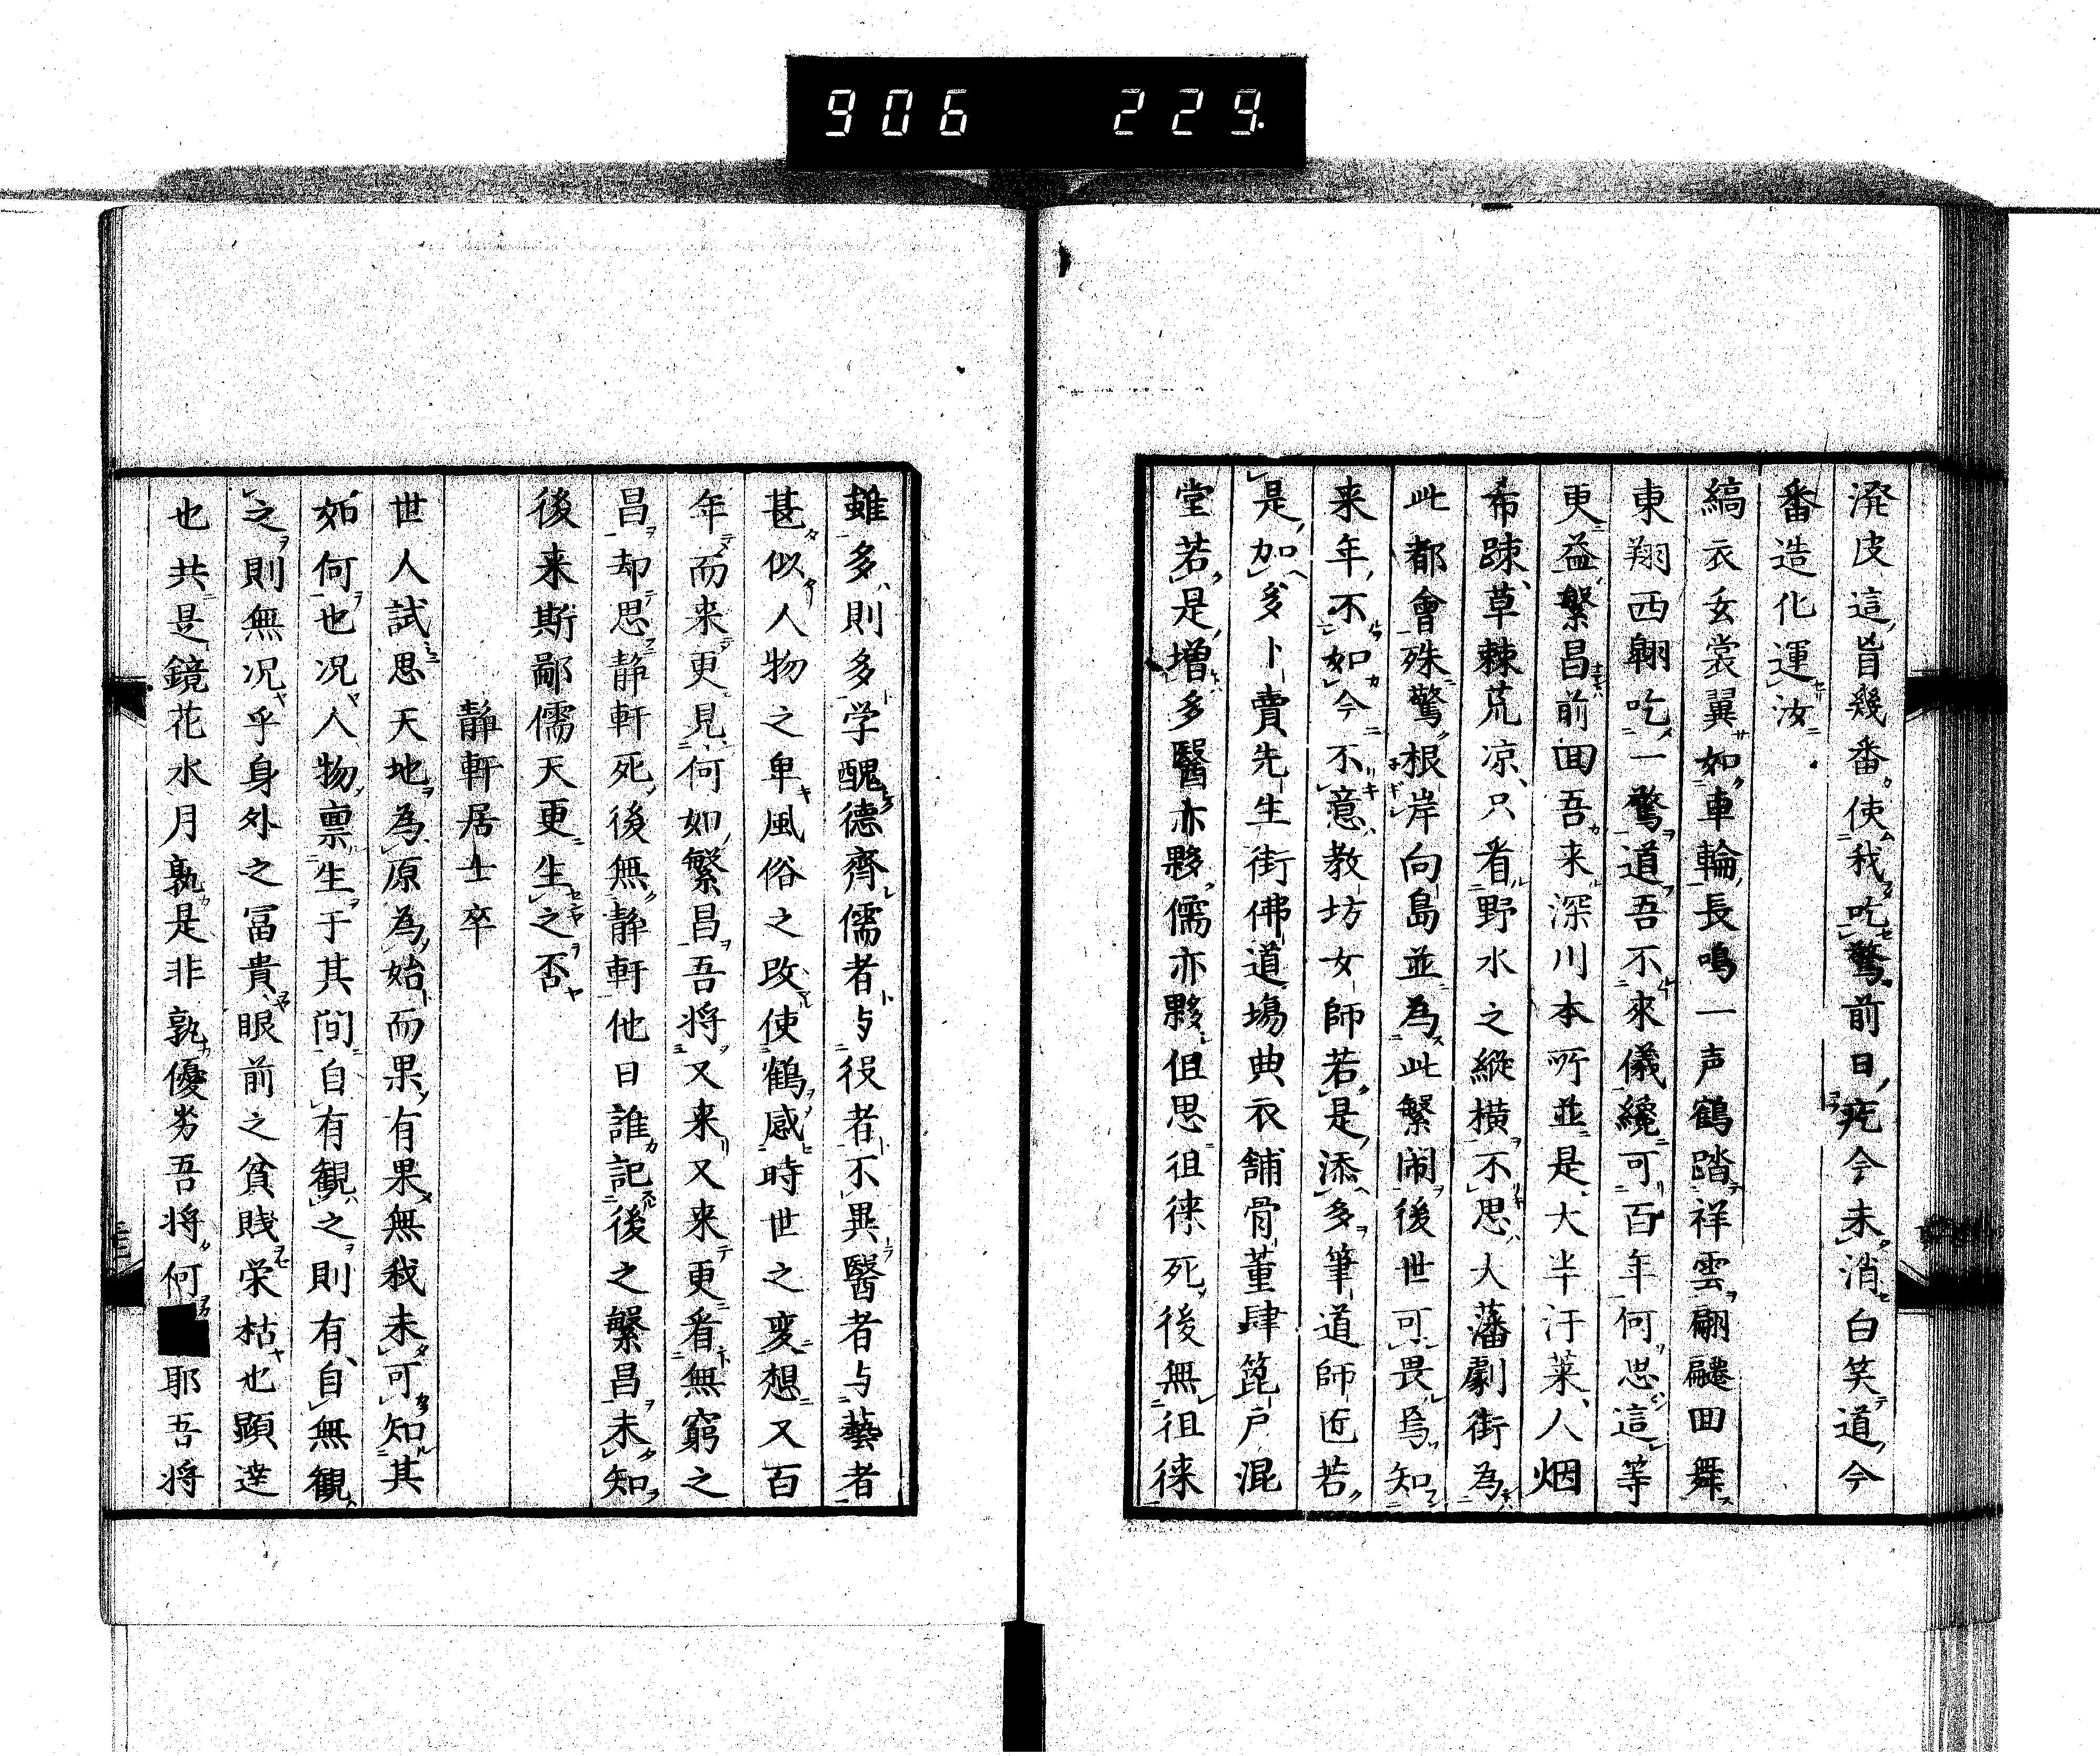 906 229
溌皮這皆幾番使我吃驚前日疣今未消白笑道今
番造化運汝
縞衣玄裳翼如車輪長鳴一声鶴踏祥雲翩䙴回舞
東翔西翱吃一驚道吾不來儀纔可百年何思這等
更益繁昌前回吾来深川本所並是大半汙莱人烟
希踈草棘荒凉只看野水之縦横不思大藩劇街為
此都會殊驚根岸向島並為此繁閙後世可畏焉知
来年不如今不意教坊女師若是添多筆道師匠若
是加多卜賣先生街佛道場典衣舗骨董肆箆戸混
堂若是増多醫亦夥儒亦夥但思徂徠死後無徂徠
雖多則多学醜德齊儒者与役者不異醫者与藝者
甚似人物之卑風俗之改使鶴感時世之変想又百
年而来更見何如繁昌吾将又来又来更看無窮之
昌却思静軒死後無静軒他日誰記後之繁昌未知
後来斯鄙儒天更生之否
静軒居士卒
世人試思天地為原為始而果有果無我未可知其
如何也况人物禀生于其間自有観之則有自無観
之則無况乎身外之冨貴眼前之貧賎栄枯也顕達
也共是鏡花水月孰是非孰優劣吾将何耶吾将